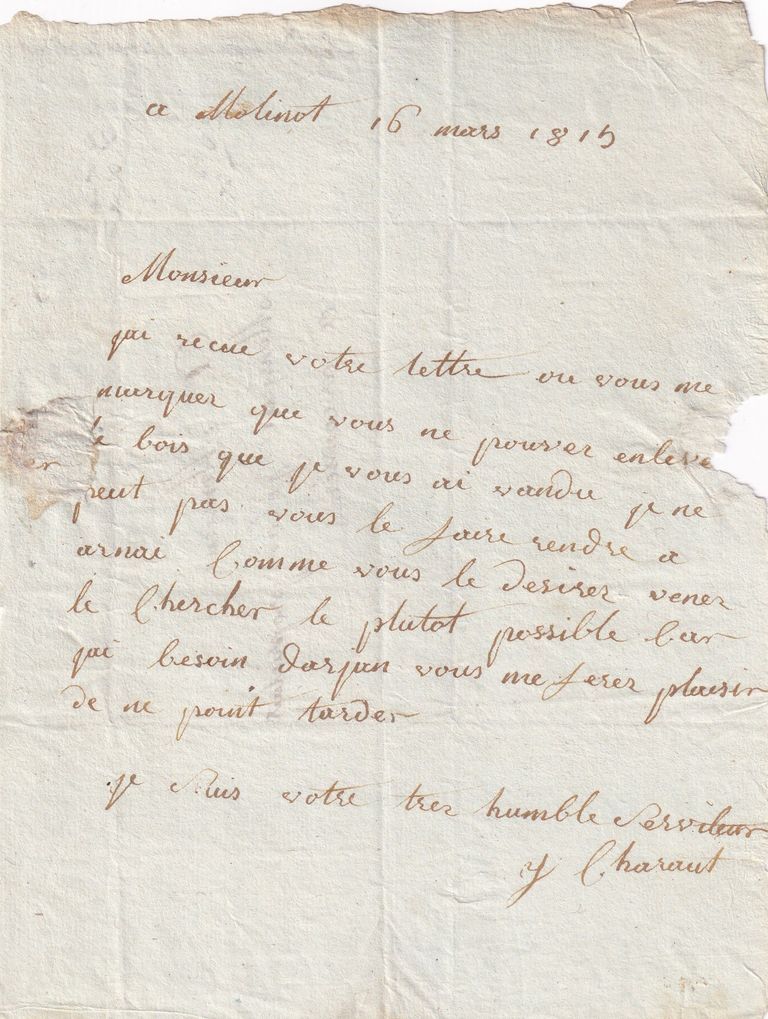 a Molinot 16 mars 1815
Monsieur
jai recue votre lettre ou vous me
marquer que vous ne pouver enleve
le bois que je vous ai vandu je ne
peut pas vous le faire rendre a
arnai Comme vous le desirer vener
le Chercher le plutot possible Car
jai besoin darjan vous me ferer plaisir
de ne point tarder
je suis votre trer humble Serviteur
Charaut